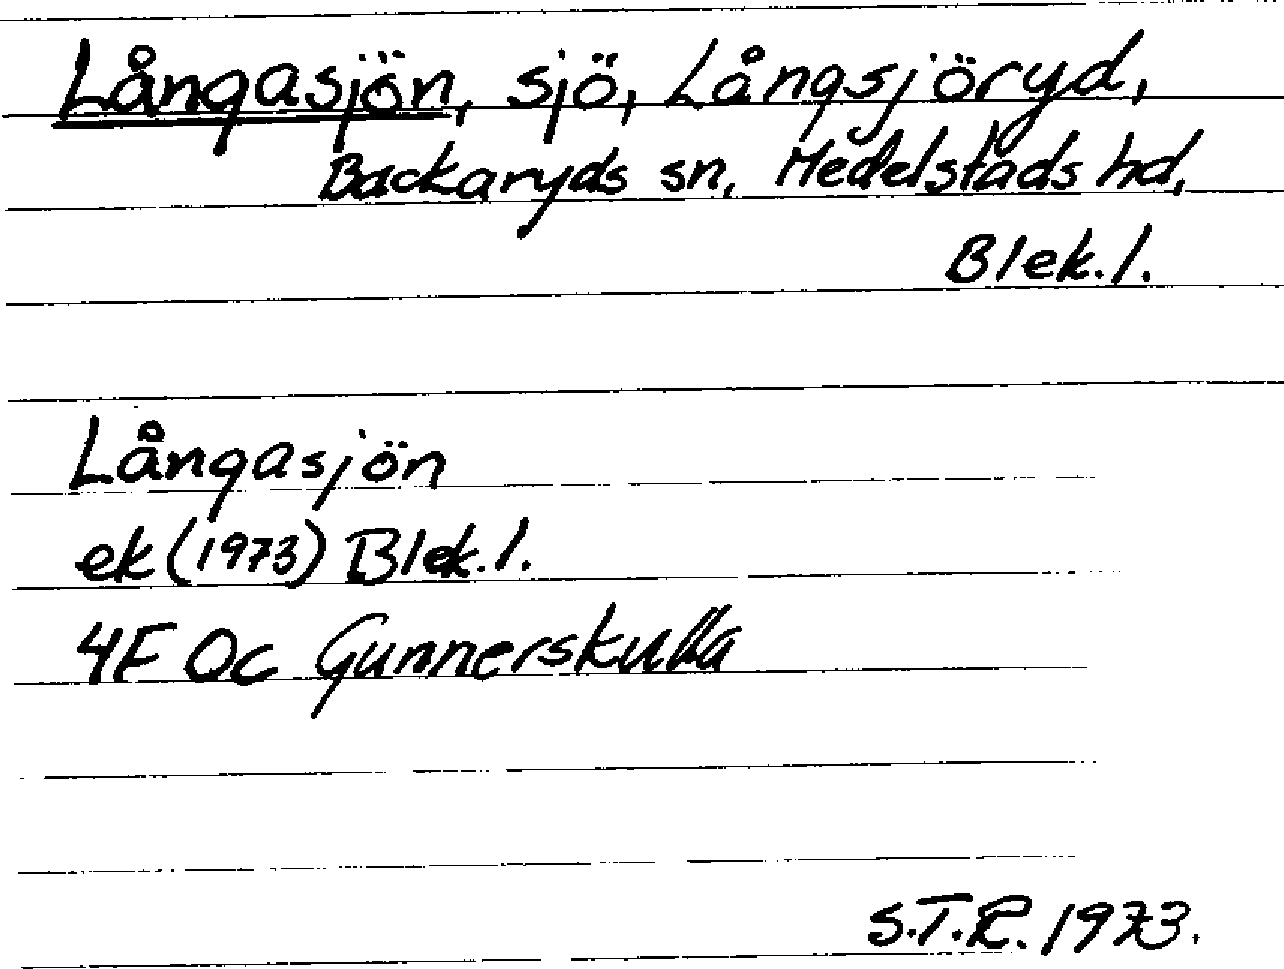 Långasjön, sjö, Långsjöryd,
Backaryds sn, Medelstads hd,
Blek. l.
Långasjön
ek (1973) Blek. l.
4F 0c Gunnerskulla
S.T.R. 1973.